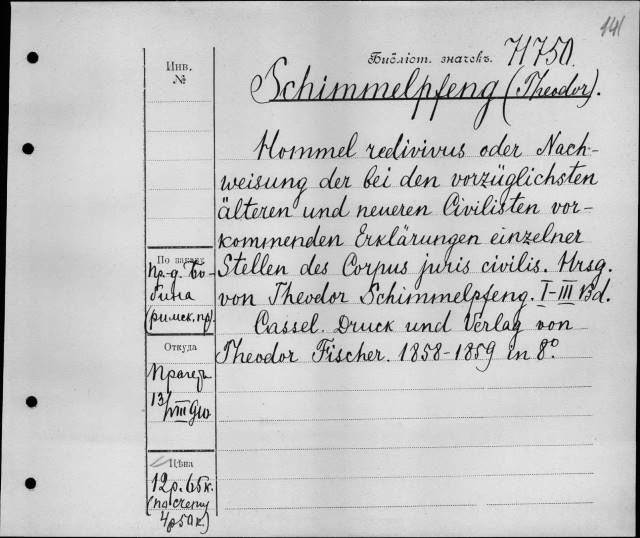 141
Библіот. значекъ. 71750.
Инв.
№
Schimmelpfeng (Theodor).
Hommel redivivus oder Nach-
weisung der bei den vorzüglichsten
älteren und neueren Civilisten vor-
kommenden Erklärungen einzelner
Stellen des Corpus juris civilis. Hrsg.
von Theodor Schimmelpfeng. I-III Bd.
Cassel. Druck und Verlag von
Theodor Fischer. 1858-1859 in 8º.
По заказу
Пр.-д. Бо-
бина
(римск. пр).
Откуда
Прагеръ
13/VIII 910
Цѣна
12 р. 65 к.
(по счету
4 р 50 к.)